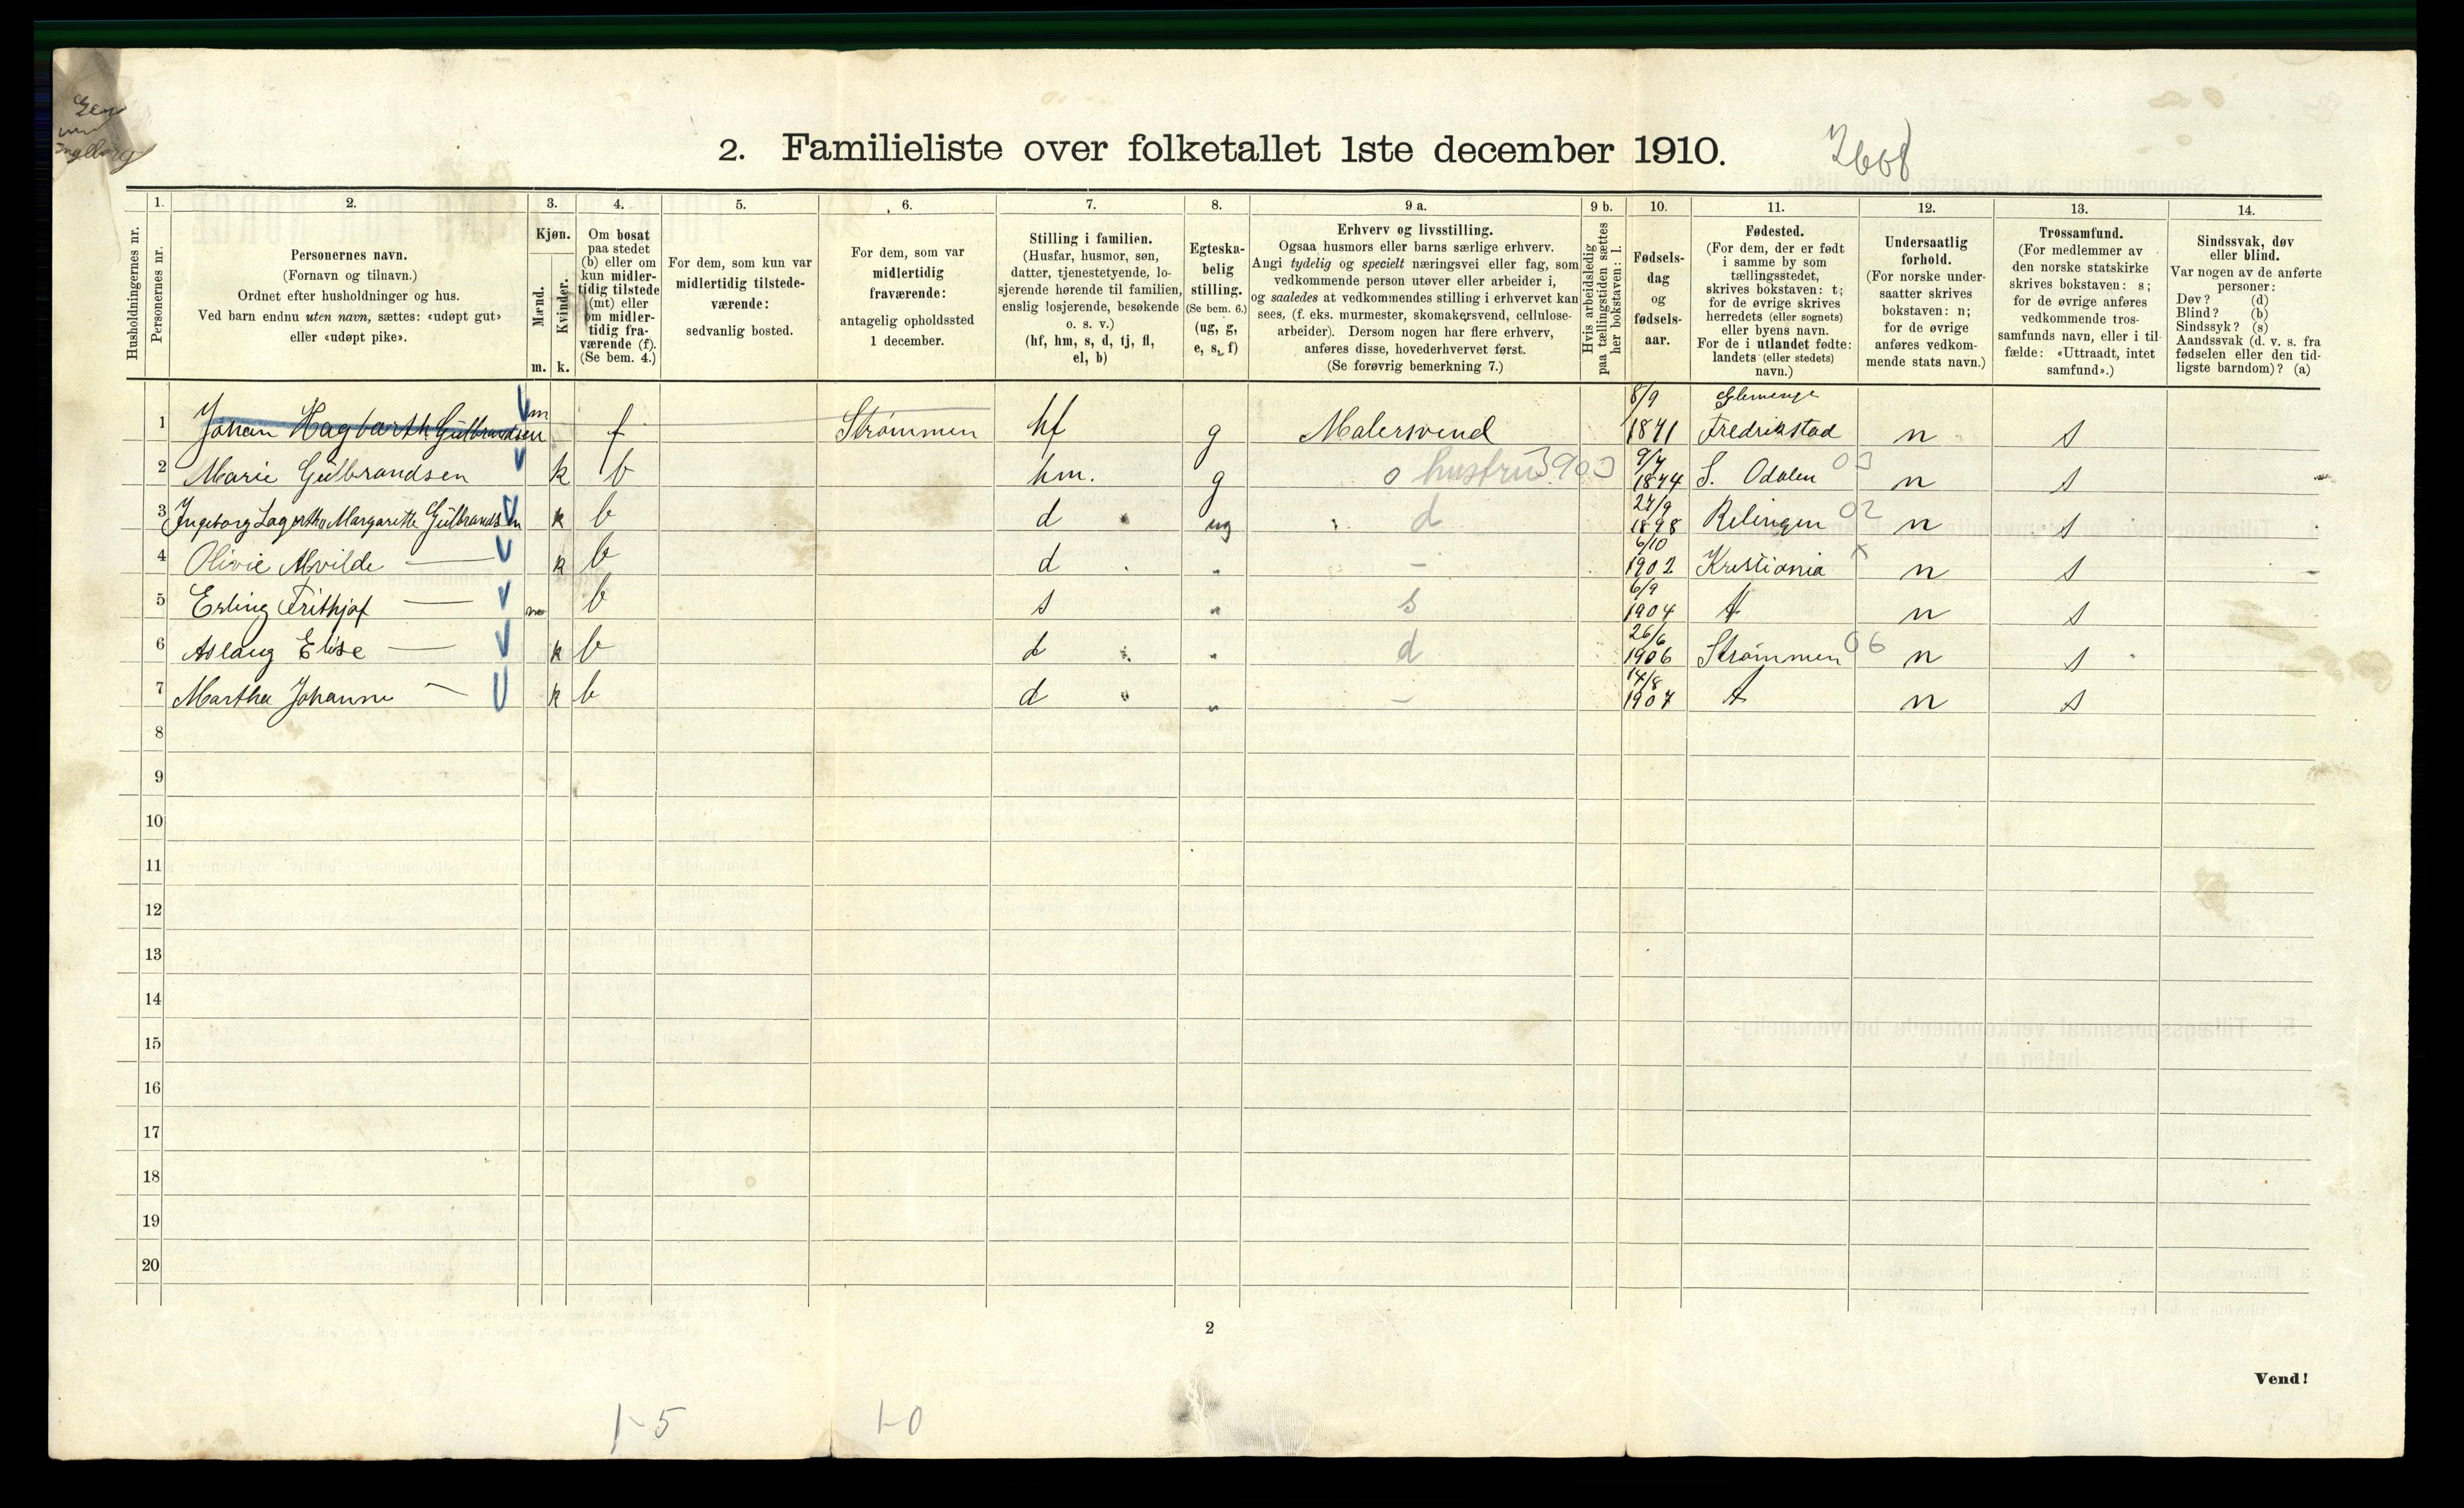 2. Familieliste over folketallet 1ste december 1910.
Husholdningernes nr.
1.
Personernes nr.
2.
Personernes navn.
(Fornavn og tilnavn.)
Ordnet efter husholdninger og hus.
Ved barn endnu uten navn, sættes: «udøpt gut»
eller «udøpt pike».
3.
Kjøn.
Mænd.
Kvinder.
m.
k.
4.
Om bosat
paa stedet
(b) eller om
kun midler-
tidig tilstede
(mt) eller
om midler-
tidig fra-
værende (f).
(Se bem. 4.)
5.
For dem, som kun var
midlertidig tilstede-
værende:
sedvanlig bosted.
6.
For dem, som var
midlertidig
fraværende:
antagelig opholdssted
1 december.
7.
Stilling i familien.
(Husfar, husmor, søn,
datter, tjenestetyende, lo-
sjerende hørende til familien,
enslig losjerende, besøkende
o. s. v.)
(hf, hm, s, d, tj, fl,
el, b)
8.
Egteska-
belig
stilling.
(Se bem. 6.)
(ug, g,
e, s, f)
9 a.
Erhverv og livsstilling.
Ogsaa husmors eller barns særlige erhverv.
Angi tydelig og specielt næringsvei eller fag, som
vedkommende person utøver eller arbeider i,
og saaledes at vedkommendes stilling i erhvervet kan
sees, (f. eks. murmester, skomakersvend, cellulose-
arbeider). Dersom nogen har flere erhverv,
anføres disse, hovederhvervet først.
(Se forøvrig bemerkning 7.)
9 b.
Hvis arbeidsledig
paa tællingstiden sættes
her bokstaven: l.
10.
Fødsels-
dag
og
fødsels-
aar.
11.
Fødested.
(For dem, der er født
i samme by som
tællingsstedet,
skrives bokstaven: t;
for de øvrige skrives
herredets (eller sognets)
eller byens navn.
For de i utlandet fødte:
landets (eller stedets)
navn.)
12.
Undersaatlig
forhold.
(For norske under-
saatter skrives
bokstaven: n;
for de øvrige
anføres vedkom-
mende stats navn.)
13.
Trossamfund.
(For medlemmer av
den norske statskirke
skrives bokstaven: s;
for de øvrige anføres
vedkommende tros-
samfunds navn, eller i til-
fælde: «Uttraadt, intet
samfund».)
14.
Sindssvak, døv
eller blind.
Var nogen av de anførte
personer:
Døv? (d)
Blind? (b)
Sindssyk? (s)
Aandssvak (d. v. s. fra
fødselen eller den tid-
ligste barndom)? (a)
1 Johan Hagbarth Gulbrandsen m f Strømmen hf g Malersvend 8/9 1871 Glemenge Fredrikstad n s
2 Marie Gulbrandsen k b hm. g o hustru 390 9/7 1874 S. Odalen 03 n s
3 Ingeborg Lagertha Margarethe Gulbrandsen k b d ug d 27/9 1898 Relingen 02 n s
4 Olivie Alvilde — k b d " - 6/10 1902 Kristiania x n s
5 Erling Frithjof — m b s " s 6/9 1904 t n s
6 Aslaug Elise — k b d " d 26/6 1906 Strømmen 06 n s
7 Martha Johanne — k b d " - 14/8 1907 t n s
8
9
10
11
12
13
14
15
16
17
18
19
20
2
Vend!
1-5
1-0